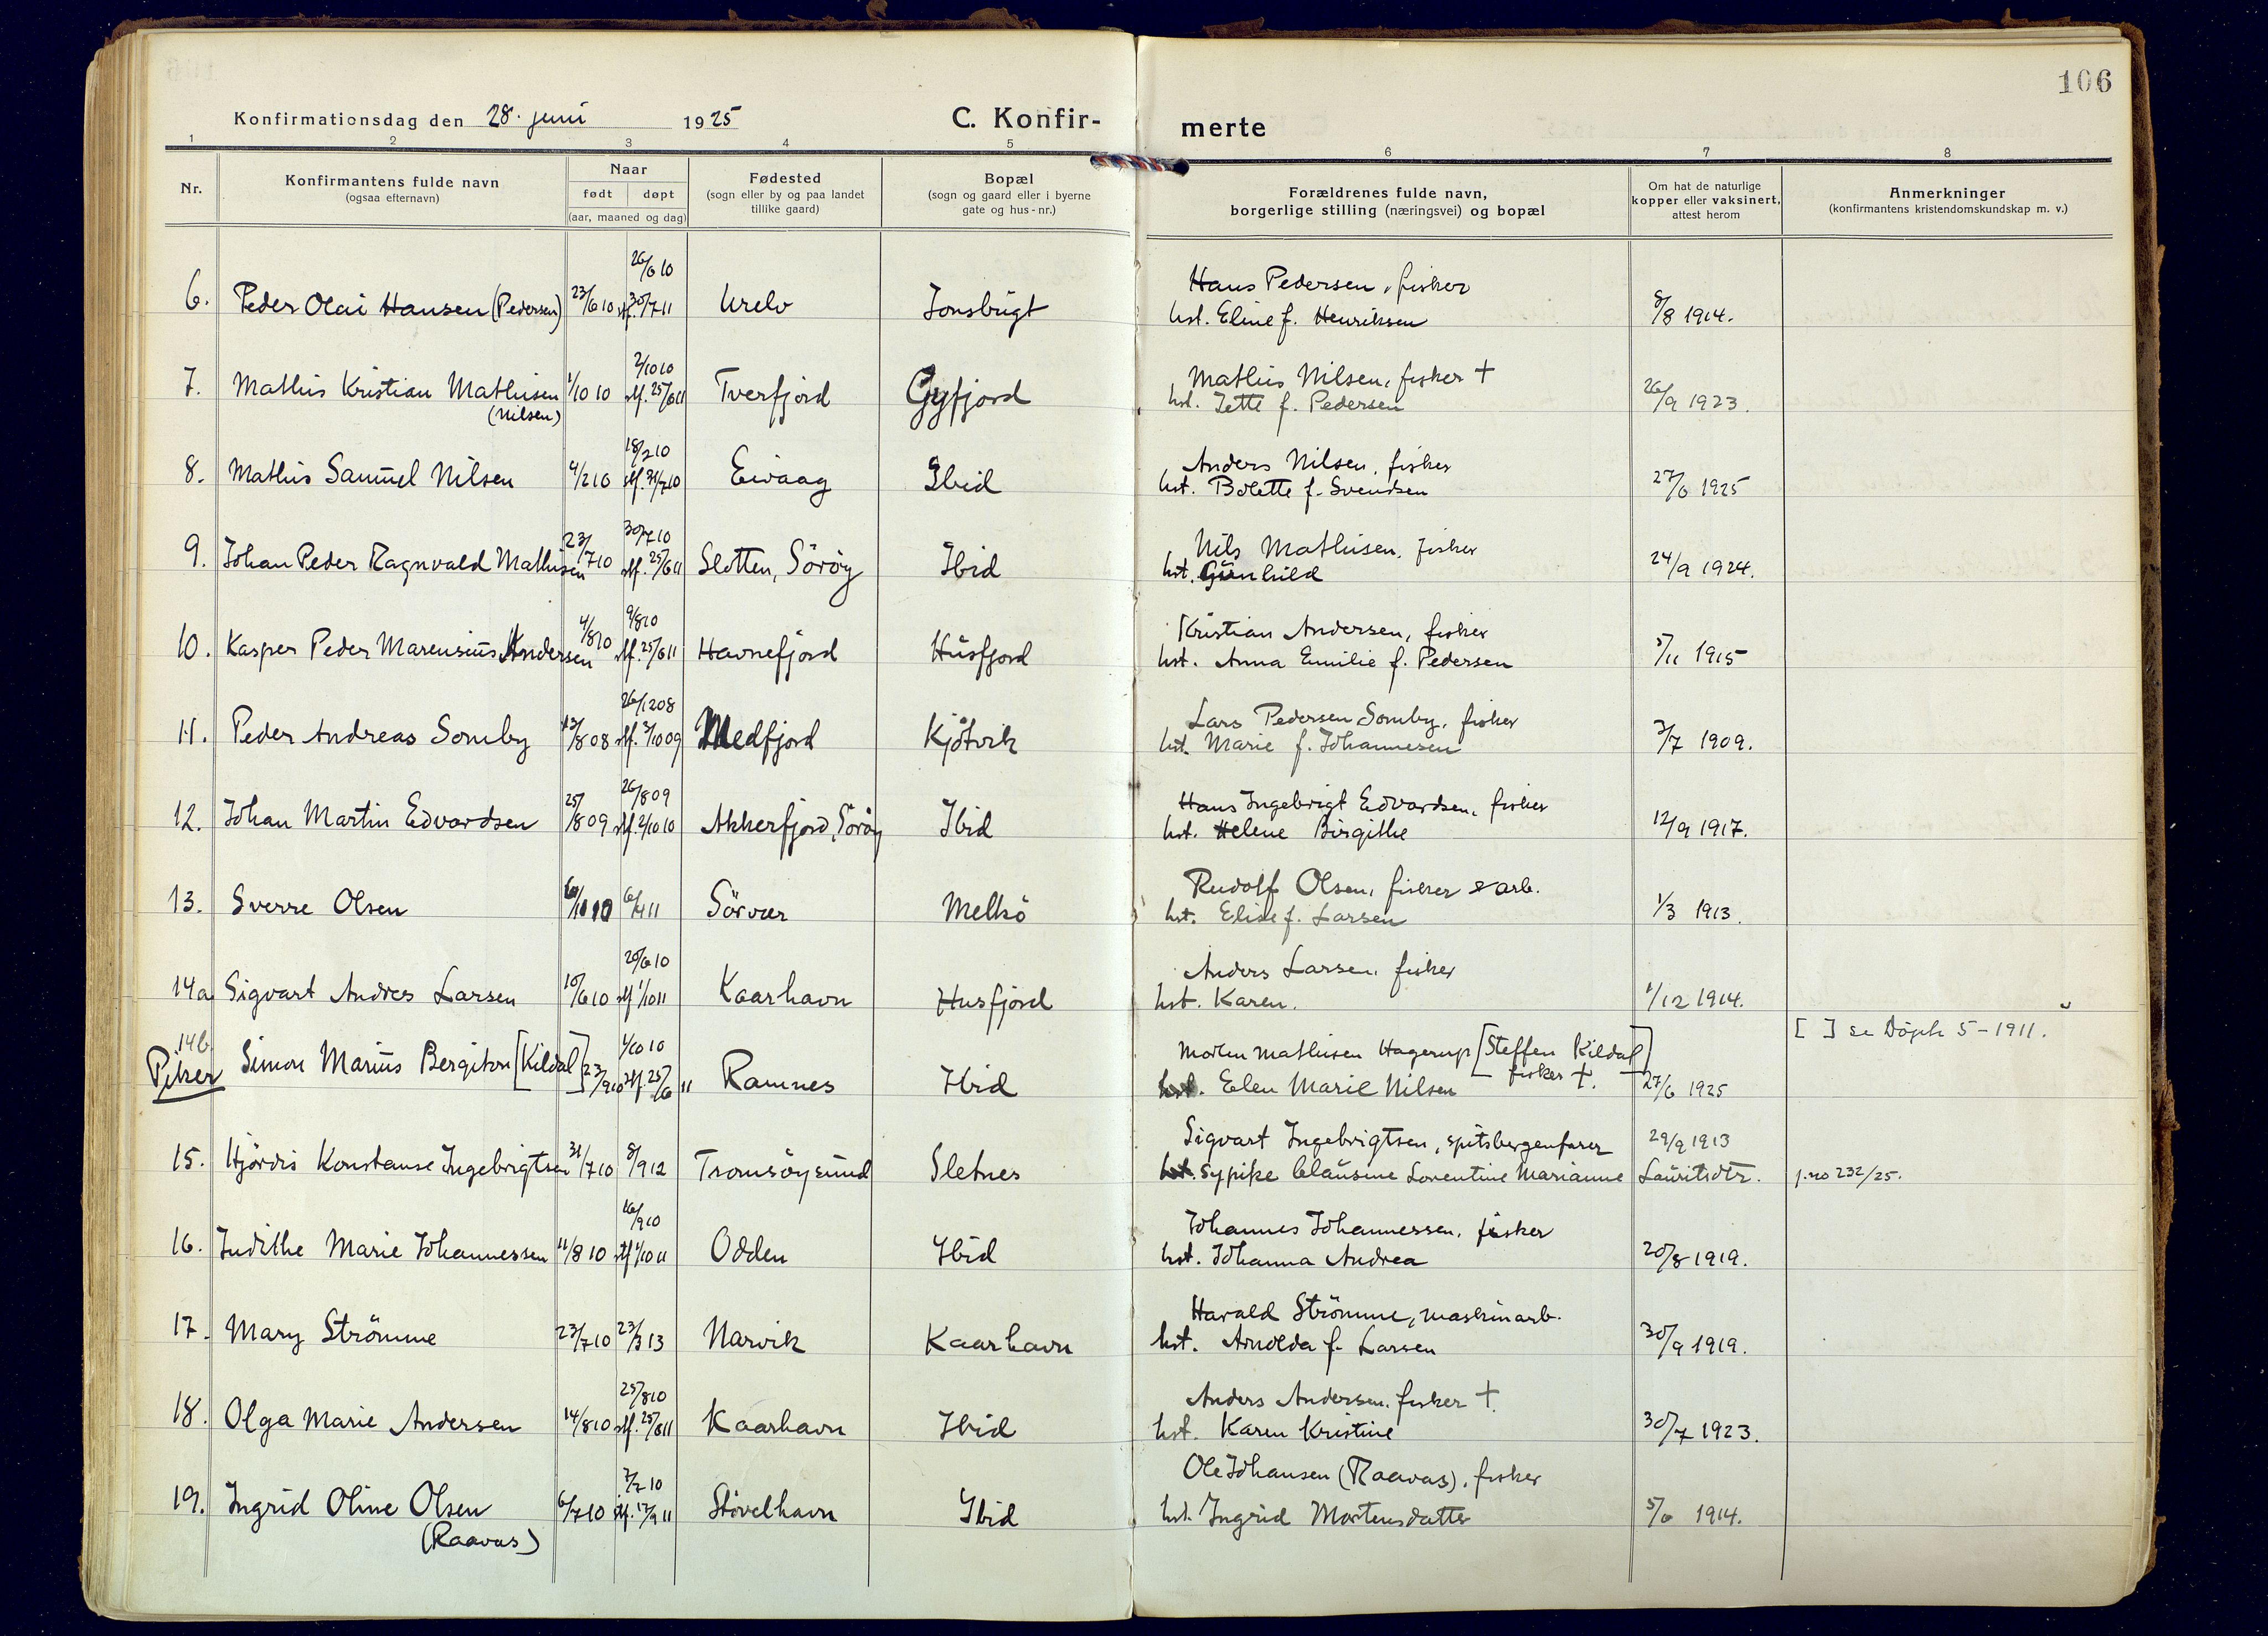 106
Konfirmationsdag den 28. juni 1925
C. Konfir-
merte
1 2 3 4 5 6 7 8
Nr.
Konfirmantens fulde navn
(ogsaa efternavn)
Naar
født døpt
(aar, maaned og dag)
Fødested
(sogn eller by og paa landet
tillike gaard)
Bopæl
(sogn og gaard eller i byerne
gate og hus-nr.)
Forældrenes fulde navn,
borgerlige stilling (næringsvei) og bopæl
Om hat de naturlige
kopper eller vaksinert,
attest herom
Anmerkninger
(konfirmantens kristendomskundskap m. v.)
26/6 10
Hans Pedersen, fisker
6. Peder Olai Hansen (Pedersen) 23/6 10 stf. 30/7 11 Jonsbugt
hst. Eline f. Henriksen 8/8 1914.
2/10 10
Mathis Nilsen, fisker †
7. Mathis Kristian Mathisen 1/10 10 stf. 25/6 11 Tverfjord Gyfjord
(Nilsen)
hst. Jette f. Pedersen 26/9 1923.
18/2 10
Anders Nilsen, fisker
8. Mathis Samuel Nilsen 4/2 10 stf. 31/7 10 Eivaag Ibid
hst. Bolette f. Svendsen 27/6 1925
30/7 10
Nils Mathisen, fisker
9. Johan Peder Ragnvald Mathisen 23/7 10 stf. 25/6 11 Slotten, Söröy Ibid
hst. Gunhild 24/9 1924.
9/8 10
Kristian Andersen, fisker
10. Kasper Peder Marensius Andersen 4/8 10 stf. 25/6 11 Havnefjord Husfjord
hst. Anna Emilie f. Pedersen 5/11 1915
26/12 08
Lars Pedersen Somby, fisker
11. Peder Andreas Somby 13/8 08 stf. 3/10 09 Medfjord Kjötvik
hst. Marie f. Johannesen 3/7 1909.
26/8 09
Hans Ingebrigt Edvardsen, fisker
12. Johan Martin Edvardsen 25/8 09 stf. 2/10 10 Akkerfjord, Söröy Ibid
hst. Helene Birgithe 12/9 1917.
Rudolf Olsen, fisker & arb.
13. Sverre Olsen 6/4 11 Sörvær Melkö
hst. Elise f. Larsen 1/3 1913.
20/6 10
Anders Larsen, fisker
14a Sigvart Andres Larsen 10/6 10 stf 1/10 11 Kaarhavn Husfjord
hst. Karen. 1/12 1914.
[ ] se Döpte 5-1911.
14b. 4/10 10
Morten Mathisen Hagerup [Steffen Kildal]
fisker †.
Simon Marius Bergiton [Kildal] 23/9 10 stf. 25/6 11 Ramnes Ibid
hst. Elen Marie Nilsen 27/6 1925
Piker
Sigvart Ingebrigtsen, spitsbergenfarer 29/9 1913
15. Hjördis Konstanse Ingebrigtsen 31/7 10 8/9 12 Tromsöysund Sletnes
hst. sypike Clausine Lorentine Marianne Lauritsdtr. j.no 232/25.
16/9 10
Johannes Johannessen, fisker
16. Judithe Marie Johannessen 11/8 10 stf 1/10 11 Odden Ibid
hst. Johanna Andrea 20/8 1919.
Harald Strömme, maskinarb.
17. Mary Strömme 23/7 10 23/3 13 Narvik Kaarhavn
hst. Arnolda f. Larsen 30/9 1919.
25/8 10
Anders Andersen, fisker †.
18. Olga Marie Andersen 14/8 10 stf. 25/6 11 Kaarhavn Ibid
hst. Karen Kristine 30/7 1923.
7/7 10
Ole Johansen (Raavas), fisker
19. Ingrid Oline Olsen 6/7 10 stf. 17/9 11 Stövelhavn Ibid
(Raavas)
hst. Ingrid Mortensdatter 5/6 1914.